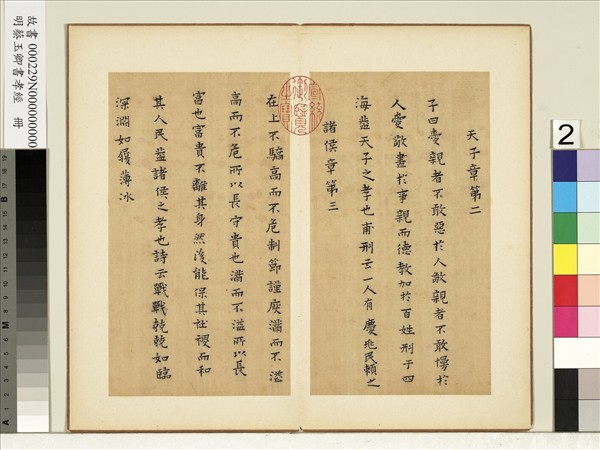 天子章第二
子曰愛親者不敢惡於人敬親者不敢慢於
人愛敬盡於事親而德教加於百姓刑于四
海蓋天子之孝也甫刑云一人有慶兆民賴之
諸侯章第三
宣統御覽之寶
在上不驕高而不危制節謹度滿而不溢
高而不危所以長守貴也滿而不溢所以長
富也富貴不離其身然後能保其社稷而和
其人民蓋諸侯之孝也詩云戰戰兢兢如臨
深淵如履薄冰
故書 000229N000000000
明蔡玉卿書孝經 冊
2